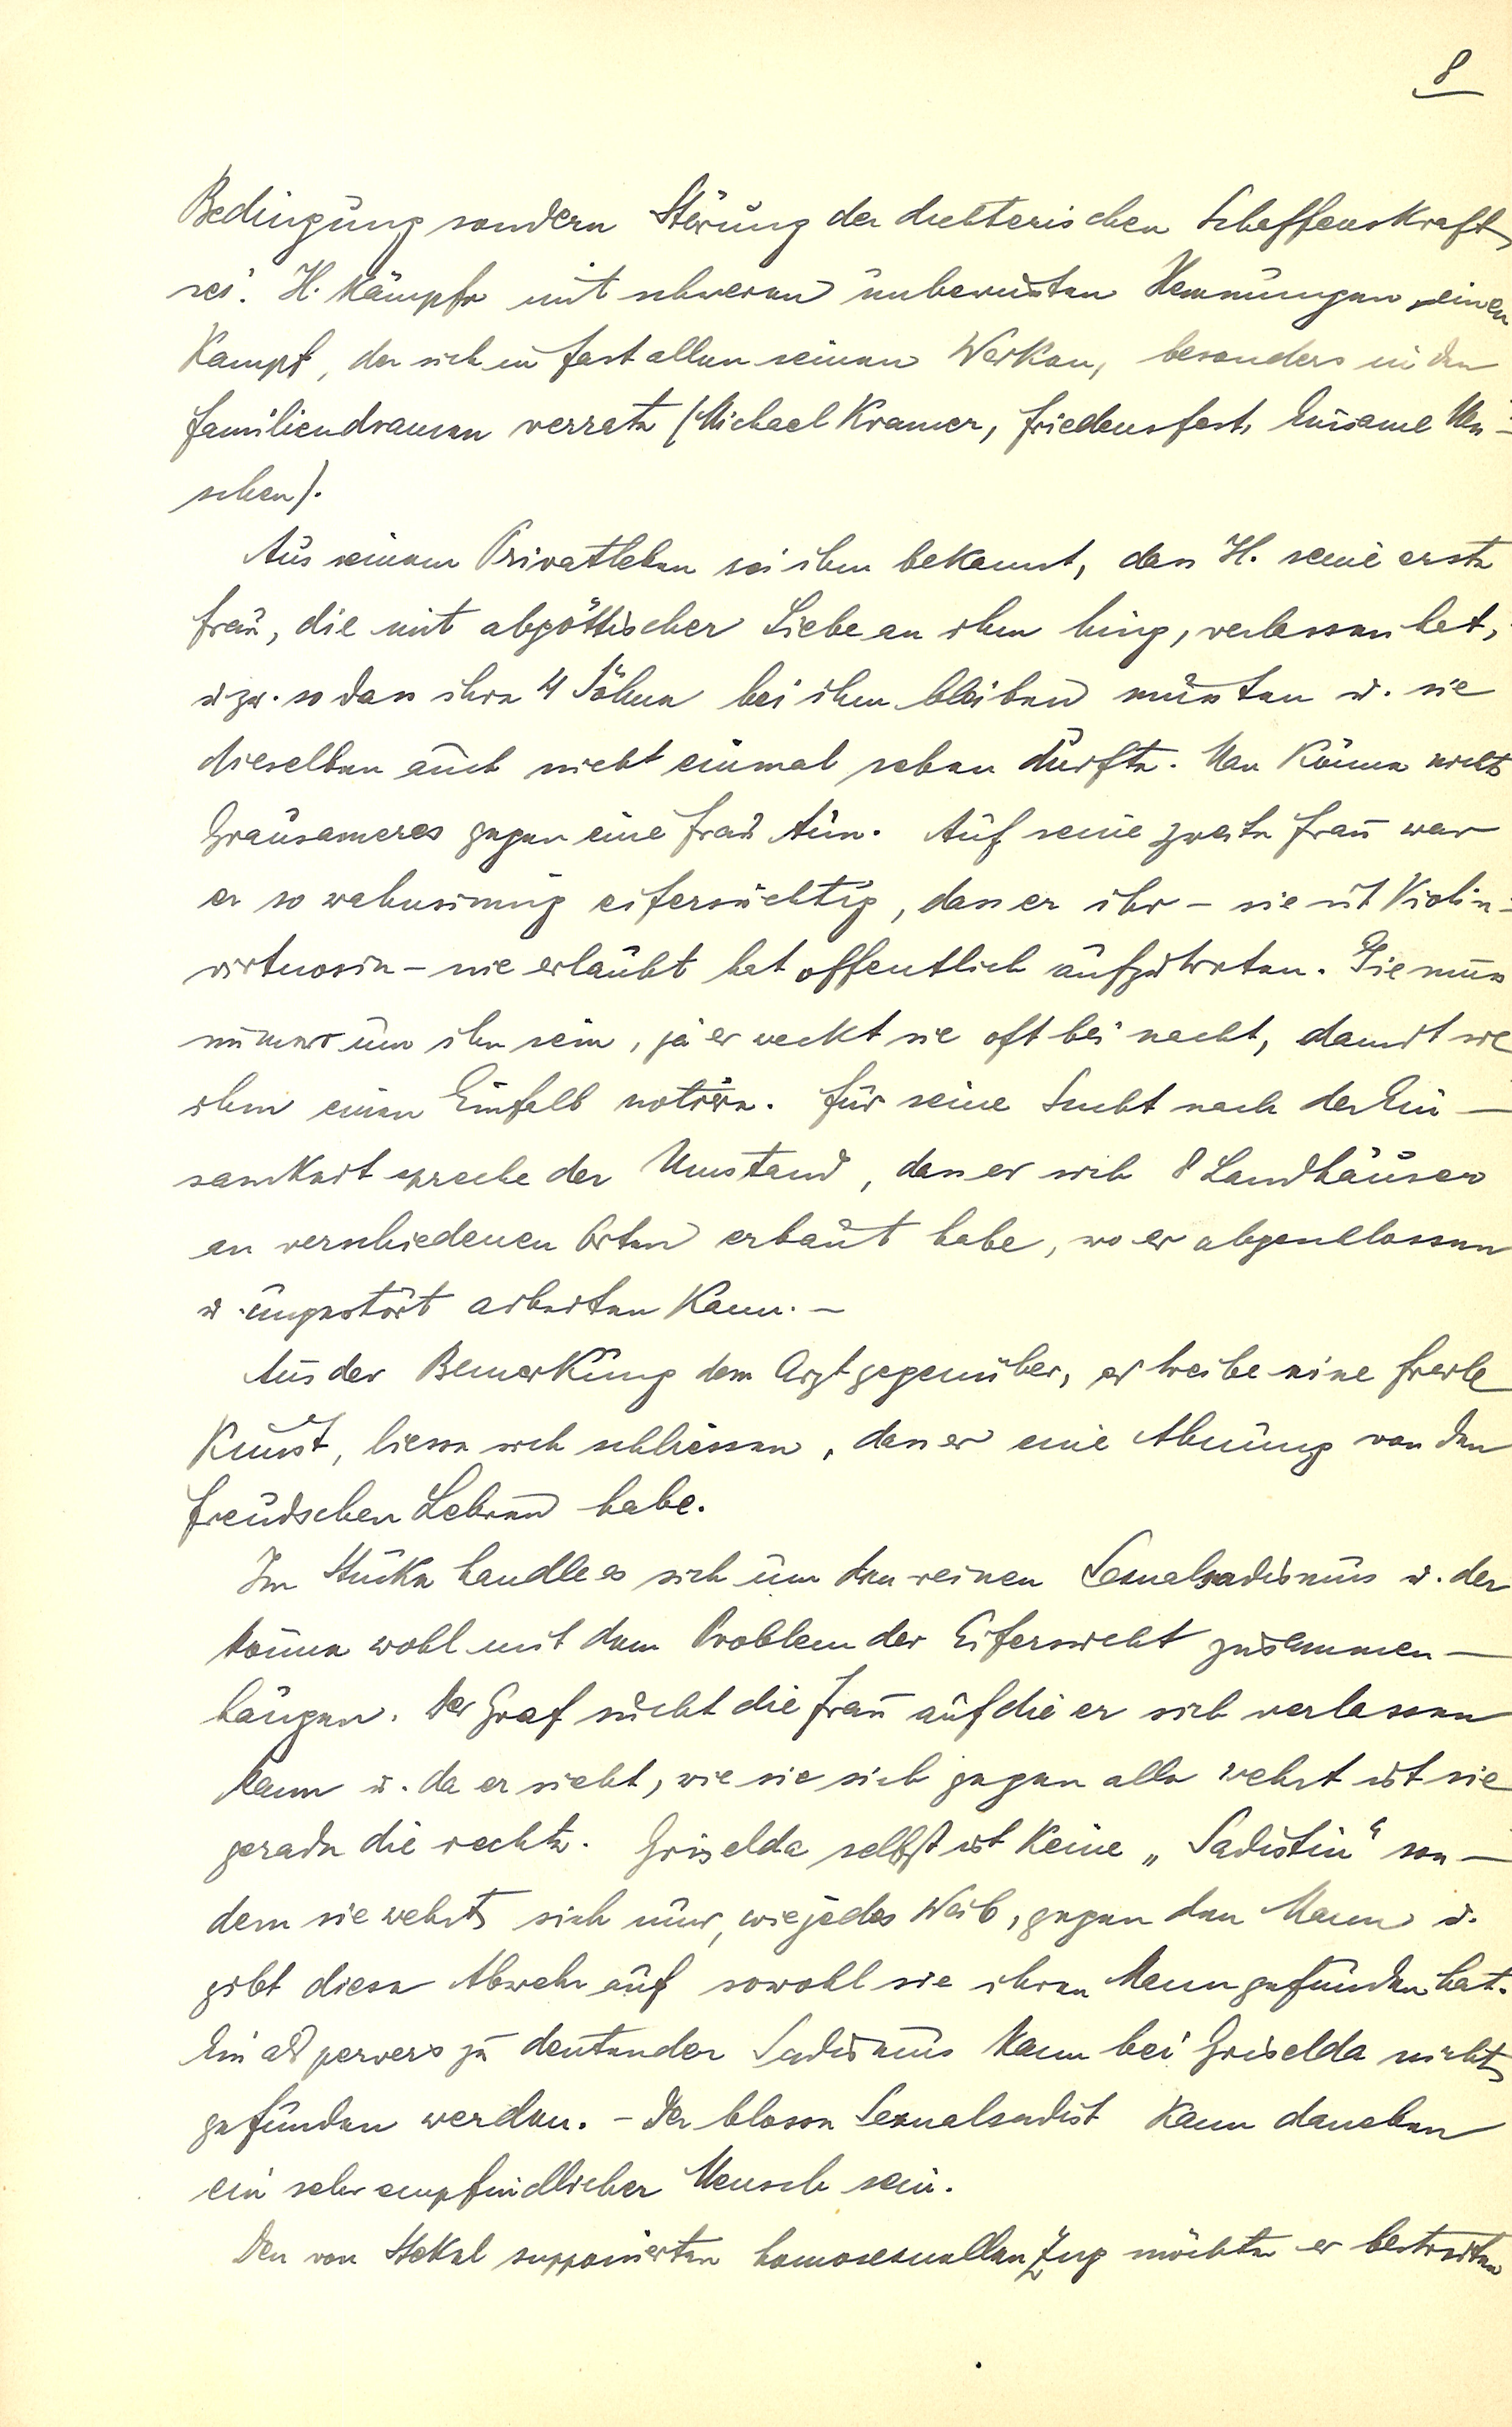 8
Bedingung sondern Störung der dichterischen Schaffenskraft
sei. H. kämpfe mit schweren unbewussten Hemmungen, einen
Kampf, der sich in fast allen seinen Werken, besonders in den
Familiendramen verrate (Michael Kramer, Friedensfest, Einsame Men-
schen).
Aus seinem Privatleben sei ihm bekannt, dass H. seine erste
Frau, die mit abgöttischer Liebe an ihm hing, verlassen hat,
u. zw. so dass ihre 4 Söhne bei ihm bleiben mussten u. sie
dieselben auch nicht einmal sehen durfte. Man könne nichts
Grausameres gegen eine Frau tun. Auf seine zweite Frau war
er so wahnsinnig eifersüchtig, dass er ihr – sie ist Violin-
virtuosin – nie erlaubt hat öffentlich aufzutreten. Sie muss
immer um ihn sein, ja er weckt sie oft bei nacht, damit sie
ihm einen Einfall notiere. Für seine Sucht nach der Ein-
samkeit spreche der Umstand, dass er sich 8 Landhäuser
an verschiedenen Orten erbaut habe, wo er abgeschlossen
u. ungestört arbeiten kann. –
Aus der Bemerkung dem Arzt gegenüber, er treibe eine freile
Kunst, liesse sich schliessen, dass er eine Ahnung von den
Freudschen Lehren habe.
Im Stücke handle es sich um den reinen Sexualsadismus u. der
könne wohl mit dem Problem der Eifersucht zusammen-
hängen. Der Graf sucht die Frau auf die er sich verlassen
kann u. da er sieht, wie sie sich gegen alle wehrt ist sie
gerade die rechte. Griselda selbst ist keine „Sadistin" son-
dern sie wehrt sich nur, wie jedes Weib, gegen den Mann u.
gibt diese Abwehr auf sowohl sie ihren Mann gefunden hat.
Ein als pervers zu deutender Sadismus kann bei Griselda nicht
gefunden werden. – Der blosse Sexualsadist kann daneben
ein sehr empfindlicher Mensch sein.
Den von Stekel supponierten homosexuellen Zug möchte er bestreiten